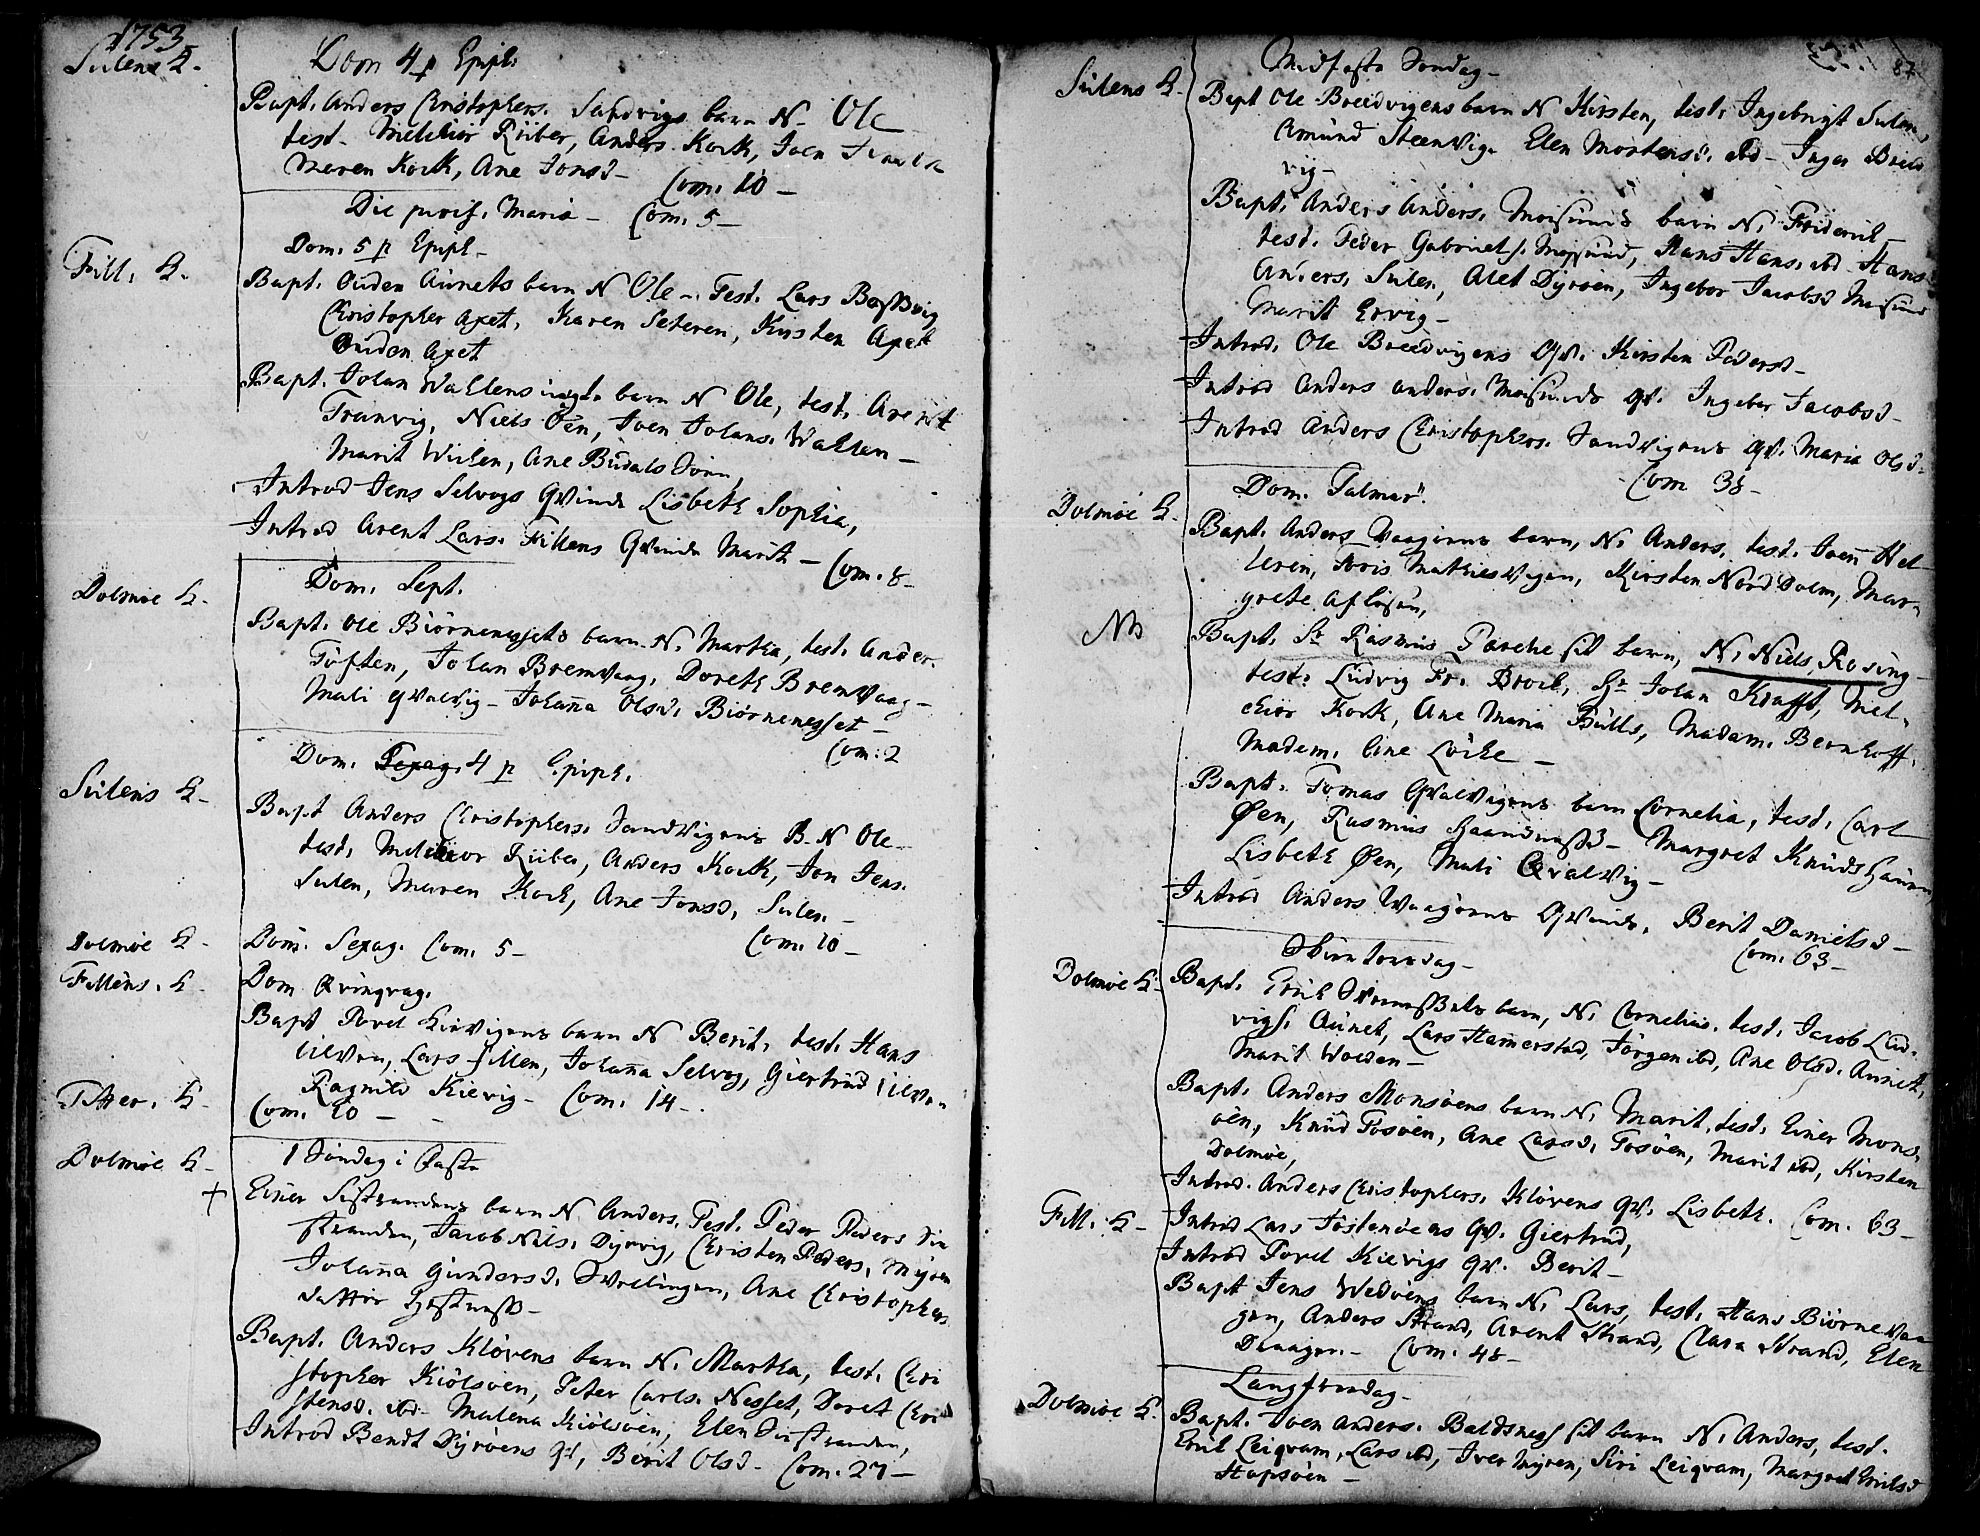 1753
Sulens K.
Dom 4 p Epiph.
Bapt. Anders Christophers. Sandvigs barn N. Ole
test. Melchior Rüber, Anders Kock, Joen
Maren Kock, Ane Jonsd. Com. 10 –
Die purif. Mariæ – Com. 5 –
Fill. K.
Dom. 5 p Epiph.
Bapt. Ouden Aunets barn N Ole – Test. Lars
Christopher Axet, Karen Seteren, Kirsten Axet
Ouden Axet
Bapt. Johan Wallens barn N Ole, test. Arent
Tranvig, Niels Öen, Joen Johans. Wallen –
Marit Wichen, Ane
Introd Jens Selvogs Qvinde Lisbeth Sophia,
Introd Arent Lars. Fillens Qvinde Marit – Com. 8 –
Dolmøe K.
Dom. Sept.
Bapt. Ole Biörnenessets barn N. Martha, test. Anders
Töften, Johan Bremvaag, Doreth Bremvaag –
Mali Qvalvig – Johanna Olsd. Biörnenesset –
Com: 2
Dom. Sexag. 4 p Epiph.
Sulens K.
Bapt Anders Christophers. Sandvigens B. N Ole –
test. Melchior Rüber, Anders Kock, Jon Jens.
Sulen, Maren Kock, Ane Jonsd. Sulen –
Com. 10 –
Dolmøe K.
Dom. Sexag. Com. 5 –
Fillens. K.
Dom Qvinqvag.
Bapt Povel Kievigens barn N Berit. test. Hans
Ulvøn, Lars Fillen, Johanna Selvog, Giertrud Ulvøn
Ragnild Kievig – Com. 14 –
Titter. K.
Com. 10 –
Dolmøe K.
1 Söndag i Faste
+
Einer Sistrandens barn N. Anders. Test. Peder Peders Si
stranden, Jacob Nils. Dyrvig, Christen Peders. Myren
Johanna Gundersd. Svellingen, Ane Christophers
datter Hestness –
Bapt. Anders Klövens barn N. Martha, test. Chri
stopher Kiölsöen, Peter Carls. Nesset, Doret Chri
stensd. ibd – Malena Kiölsöen, Elen Sistranden,
Introd Bendt Dyröens Qv. Berit Olsd – Com. 27 –
87
Midfaste Sondag –
Sulens K.
Bapt Ole Breedvigens barn N Kirsten, test. Ingebrigt Sulen,
Amund Steenvig. Elen Mortensd. ibd – Inger Breed
vig –
Bapt. Anders Anders. Moisunds barn N. Friderik –
test. Peder Gabriels. Moisund, Hans Hans. ibd – Hans
Anders. Sulen, Alet Dyröen, Ingebor Jacobsd Moisund
Marit Ervig –
Introd. Ole Breedvigens Qv. Kirsten Pedersd –
Introd Anders Anders. Moisunds Qv. Ingebor Jacobsd –
Introd Anders Christophers. Sandvigens Qv. Maria Olsd –
Com 38 –
Dolmøe K.
Dom. Palmar.
Bapt. Anders Vaagöens barn, N. Anders. test. Joen Hel
leren, Joris Mathiesvogen, Kirsten Nord Dolm, Mar
grete Aflösen,
NB
Bapt. Hr Rasmus Parche sit barn, N. Niels Rosing –
test: Ludvig Fr. Broch, Hr Johan Krafft, Mel
chior Kock, Ane Maria Bülls, Madam. Bernhoff.
Madem. Ane Löche –
Bapt. Tomas Qvalvigens barn Cornelia, test. Carl
Øen, Rasmus – Margret
Lisbeth Øen, Mali Qvalvig –
Introd Anders Waagöens Qvinde, Berit Danielsd –
Com. 63 –
Skiertorsdag –
Dolmøe K.
Bapt. Erich barn, N. Cornelius. test. Jacob Lud
vigs. Aunet, Lars Hamerstad, Jörgen ibd, Ane Olsd. Aunet,
Marit Wolden –
Bapt. Anders Monsöens barn N. Marit, test. Einer Mons
öen, Knud Fosöen, Ane Larsd. Fosöen, Marit ibd, Kirsten
Dolmöe,
Introd. Anders Christophers. Klövens Qv. Lisbeth. Com. 63 –
Fill. K –
Introd Lars Töstenöens Qv. Giertrud,
Introd Povel Kievigs Qv. Berit –
Bapt Jens Wedöens barn N. Lars, test. Hans Biörnevaa
gen, Anders Strand, Arent Strand, Clara Strand, Elen
– Com. 48 –
Langfredag –
Dolmøe K.
Bapt. Joen Anders. Baldsnes sit barn N. Anders, test.
Eril Leiqvam, Lars ibd, Iver Myren, Siri Leiqvam, Margret
Hopsöen –